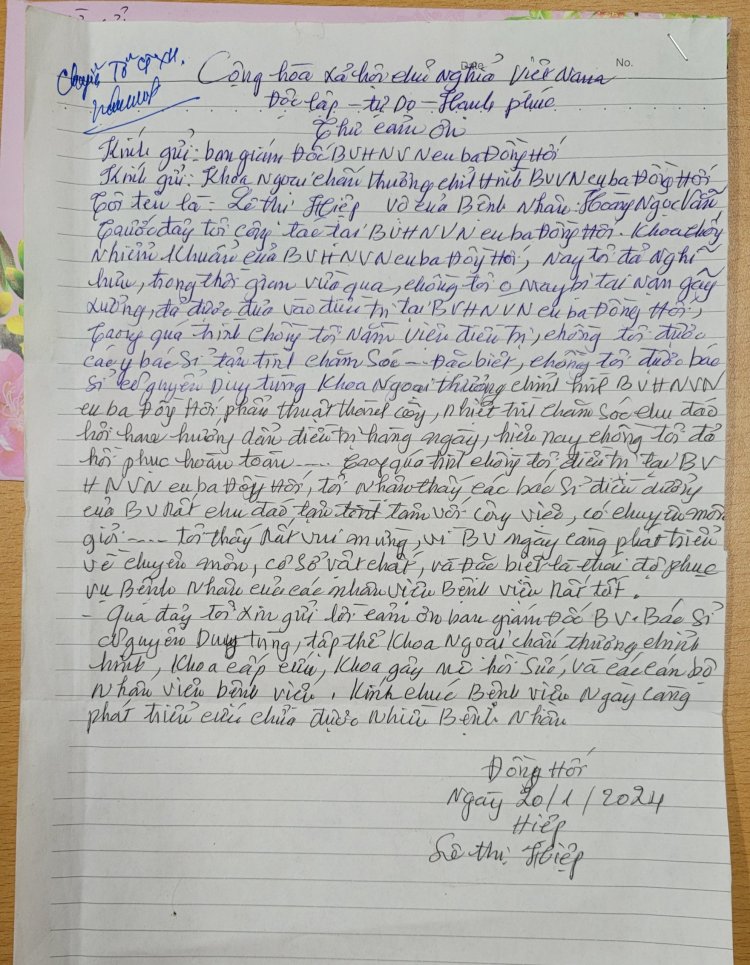 Chuyển Tổ CTXH.
No.
Date
Cộng hòa xả hội chủ nghĩa Việt Nam
Độc lập - tự Do - Hanh phúc
Thư cảm ơn
Kính gửi: ban giám Đốc BVHNVN cu ba Đồng Hới
Kính gửi: Khoa Ngoại chấn thương chỉnh Hình BVVN cu ba Đồng Hới
Tôi tên là - Lê thị Hiệp vợ của Bệnh Nhân: Hoàng Ngọc Vấn
Trước đây tôi công tác tại BVHNVN cu ba Đồng Hới. Khoa chống
Nhiểm Khuẩn của BVHNVN cu ba Đồng Hới, nay tôi đả nghỉ
hưu, trong thời gian vừa qua, chồng tôi o may bị tai nạn gãy
xương, đả được đưa vào điều trị tại BVHNVN cu ba Đồng Hới,
Trong quá trình chồng tôi Nằm viện điều trị, chồng tôi được
các y bác Sĩ tận tình chăm Sóc -- Đặc biệt, chồng tôi được bác
Sĩ cơ nguyển Duy tùng Khoa Ngoại thương chỉnh hình BVHNVN
cu ba Đồng Hới phẩu thuật thành công, nhiệt tình chăm Sóc chu đáo
hỏi han hướng dẩn điều trị hàng ngày, hiện nay chồng tôi đả
hồi phục hoàn toàn ---- Trong quá trình chồng tôi điều trị tại BV
HNVN cu ba Đồng Hới, tôi nhận thấy các bác Sĩ điều dưỡng
của BV Rất chu đáo tận tình tâm với công việc, có chuyên môn
giỏi ---- tôi thấy Rất vui mừng, vì BV ngày càng phát triển
về chuyên môn, cơ Sở vật chất, và Đặc biệt là thái độ phục
vụ Bệnh Nhân của các nhân viên Bệnh viện Rất tốt.
- Qua đây tôi xin gửi lời cảm ơn ban giám Đốc BV. Bác Sĩ
cơ nguyển Duy tùng, tập thể Khoa Ngoại chấn thương chỉnh
hình, Khoa cấp cứu, Khoa gây mê hồi Sức, và các cán bộ
nhân viên bệnh viện. Kính chúc Bệnh viện Ngày càng
phát triển cứu chữa được Nhiều Bệnh Nhân
Đồng Hới
Ngày 20/1/2024
Hiệp
Lê thị Hiệp